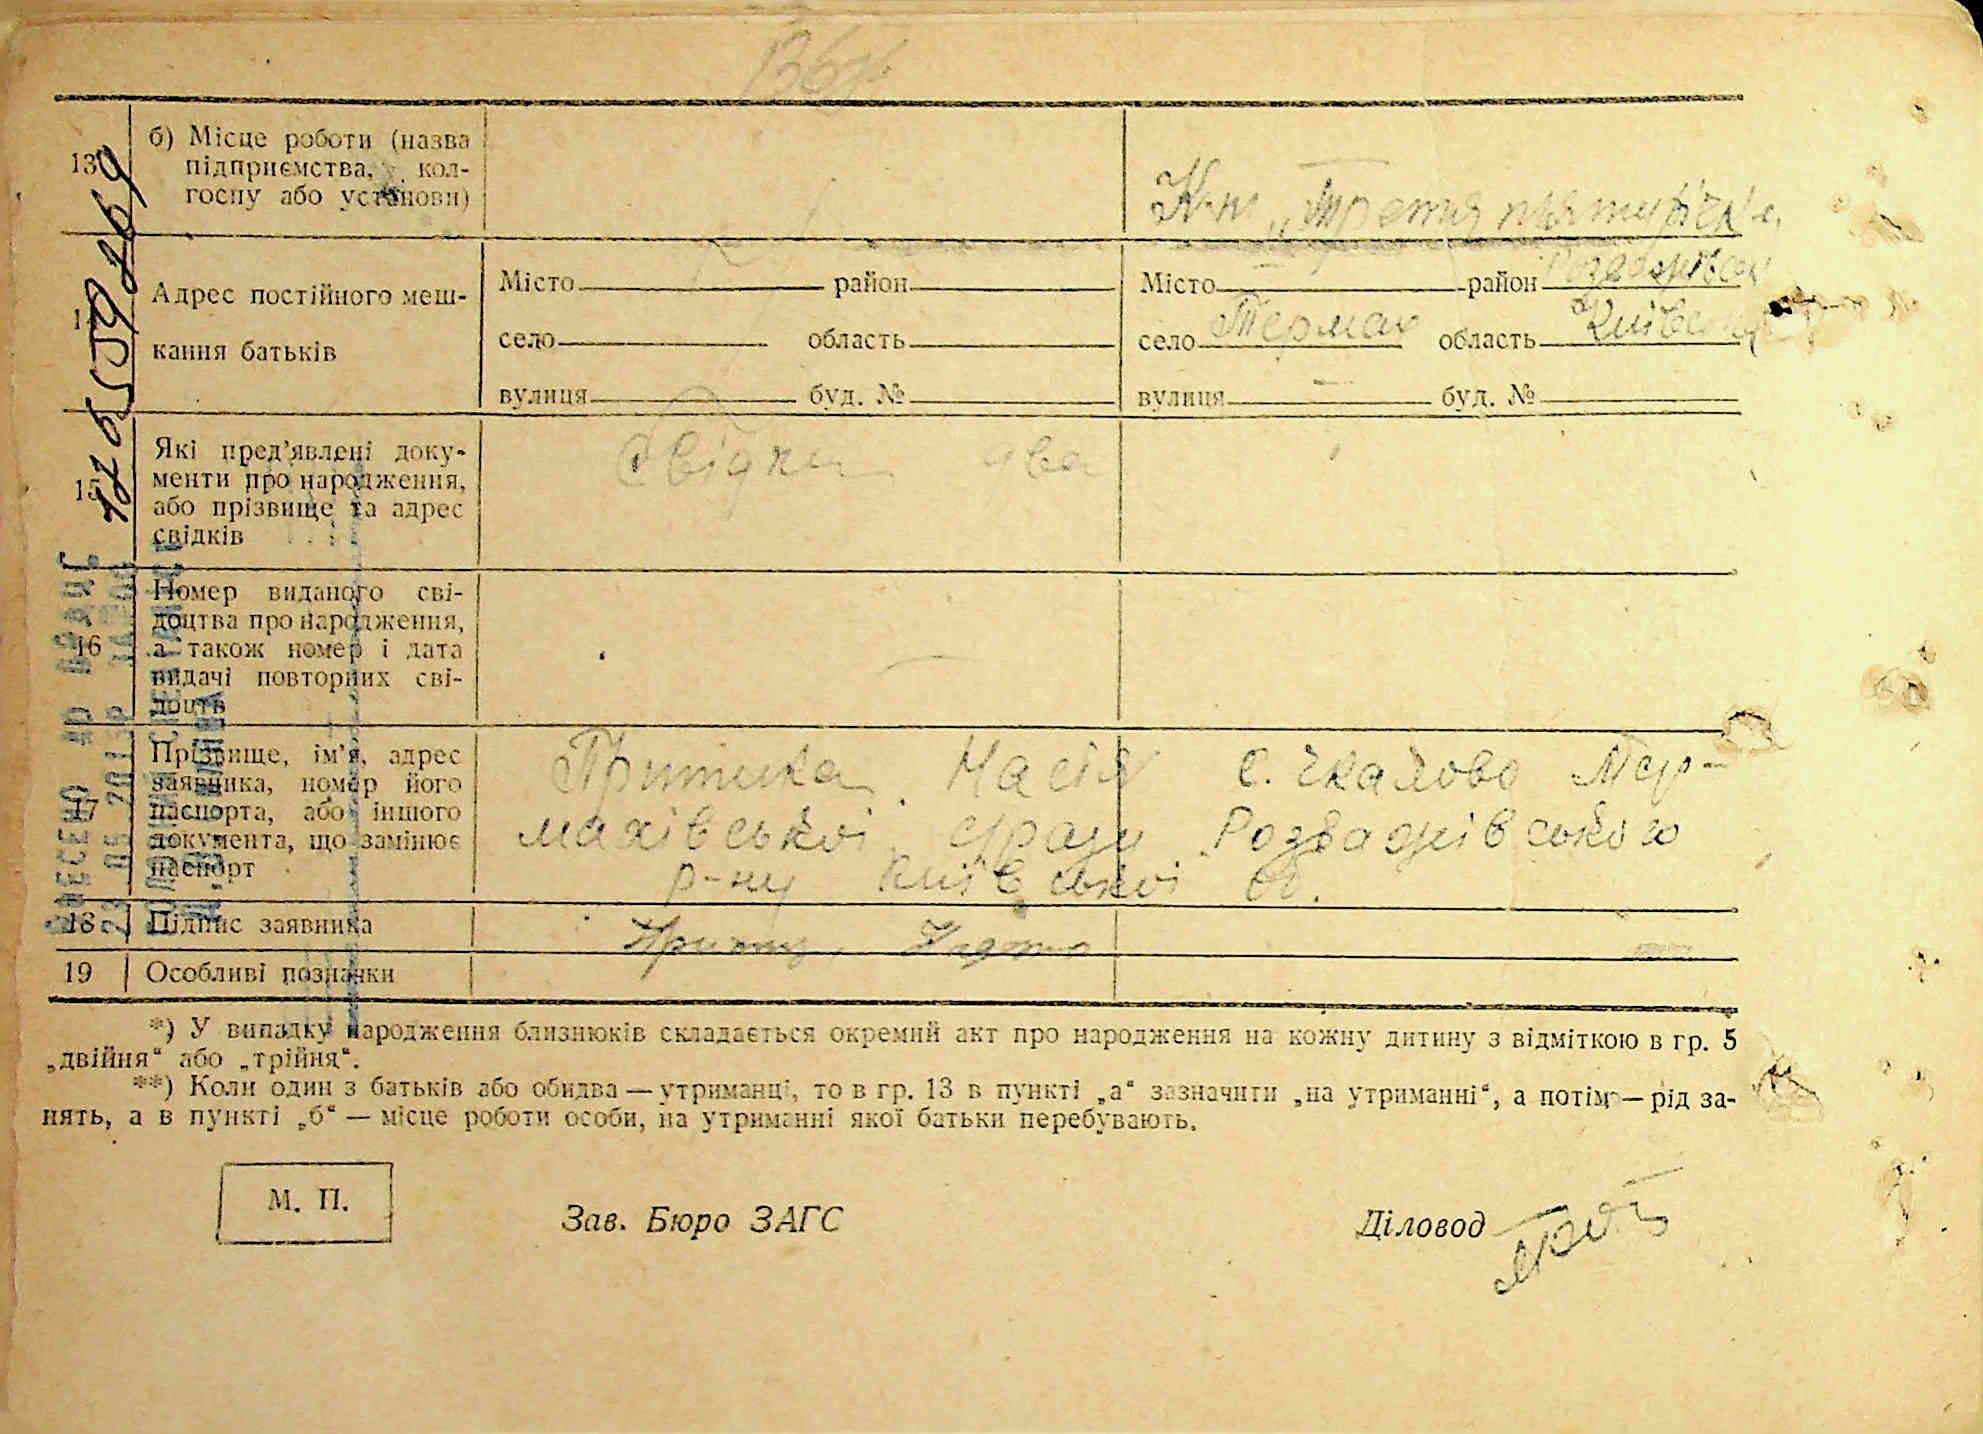 136
13
б) Місце роботи (назва
підприємства, кол-
госпу або установи)
К-п „Третия пятирічка"
14
Адрес постійного меш-
кання батьків
Місто район
село область
вулиця буд. №
Місто район
село Термах область Київська
вулиця – буд. №
15
Які пред'явлені доку-
менти про народження,
або прізвище та адрес
свідків
Свідки два
16
Номер виданого сві-
доцтва про народження,
а також номер і дата
видачі повторних сві-
доцтв
17
Прізвище, ім'я, адрес
заявника, номер його
паспорта, або іншого
документа, що замінює
паспорт
Притика Настя с. Чкалово Тер-
махівської с/ради Розважівського
р-ну Київської об.
18 Підпис заявника
19 Особливі позначки
*) У випадку народження близнюків складається окремий акт про народження на кожну дитину з відміткою в гр. 5
„двійня“ або „трійня“.
**) Коли один з батьків або обидва — утриманці, то в гр. 13 в пункті „а“ зазначити „на утриманні“, а потім — рід за-
нять, а в пункті „б“ — місце роботи особи, на утриманні якої батьки перебувають.
М. П.
Зав. Бюро ЗАГС
Діловод